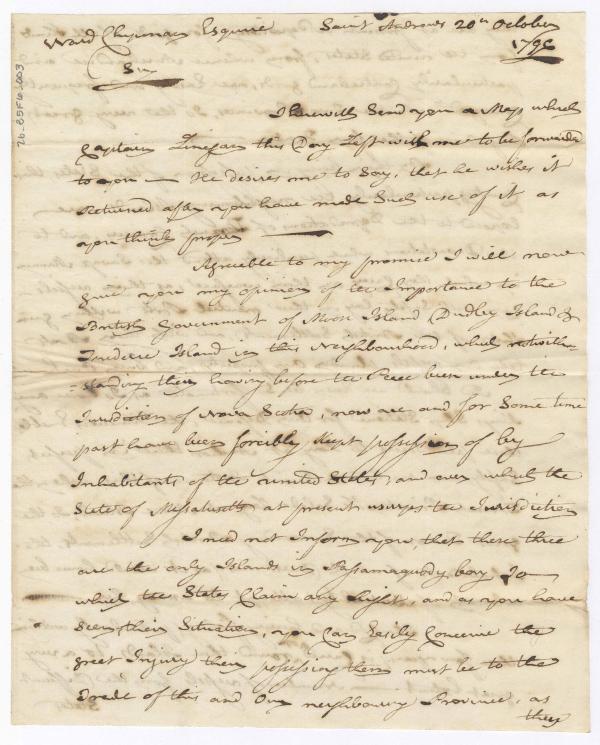 Ward Chipman Esquire Saint Andrews 20th October
1796
Sir
I herewith Send you a Map which
Captain this Day Left with me to be forwarded
to you — He desires me to Say, that he wishes it
Returned after you have made Such use of it as
you think proper
Agreeable to my promise I will now
give you my opinion of the Importance to the
British Government of Moose Island Dudley Island &
Frederic Island in this Neighbourhood, which notwith=
=standing their having before the Peace been under the
Jurisdiction of Nova Scotia, now are and for Some time
past have been forcibly kept possession of by
Inhabitants of the united States, and over which the
State of Massatusetts at present usurps the Jurisdiction
I need not Inform you, that these three
are the only Islands in Passamaquody bay To
which the States Claim any Right, and as you have
Seen their Situation, you Can Easily Conceive the
great Injury their possessing them must be to the
Trade of this and Our neighbouring Province, as
they
26-85F6-003